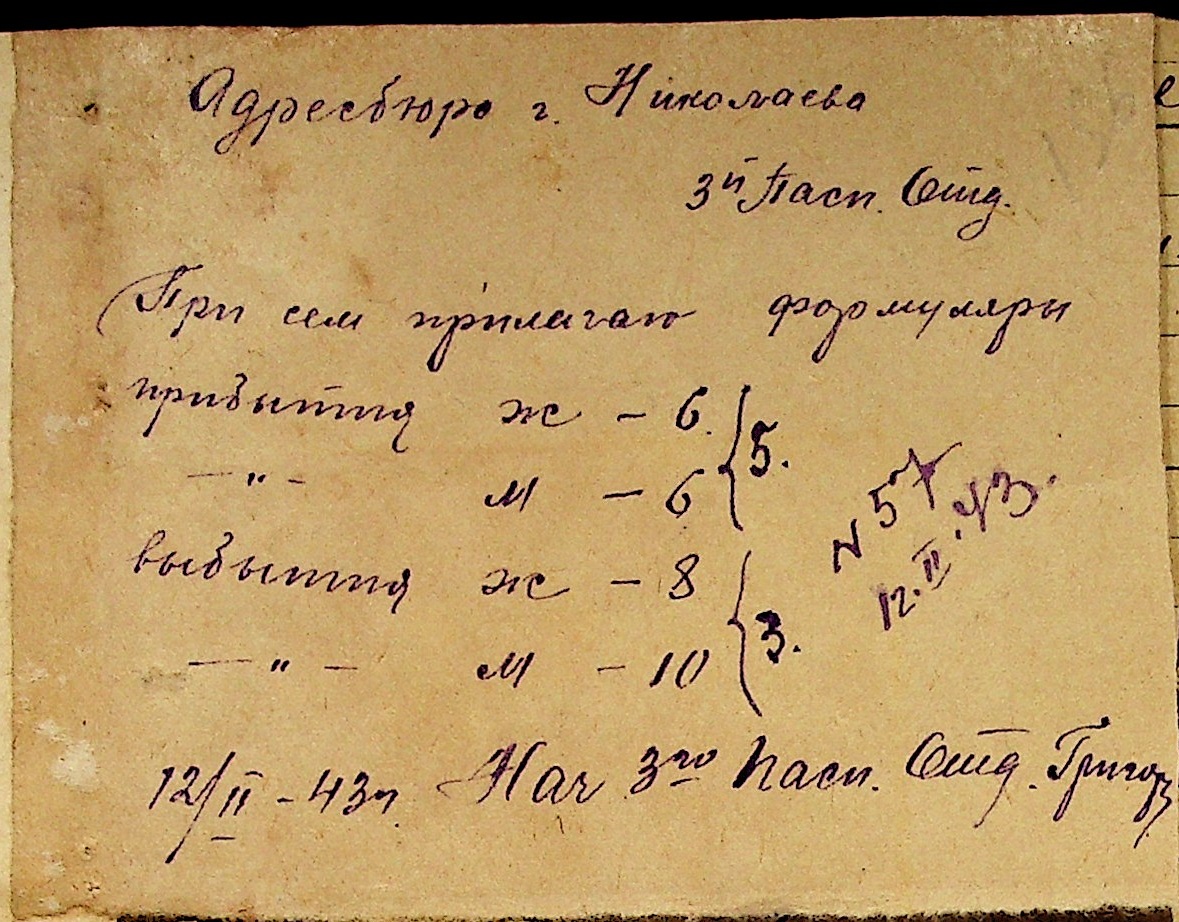 Адресбюро г. Николаева
3й Пасп. Отд.
При сем прилагаю формуляры
прибытия ж - 6. } 5.
— " - м - 6
выбытия ж - 8 } 3.
— " - м - 10
N 57
12.II.43.
12/II - 43 г. Нач 3го Пасп. Отд. Григор